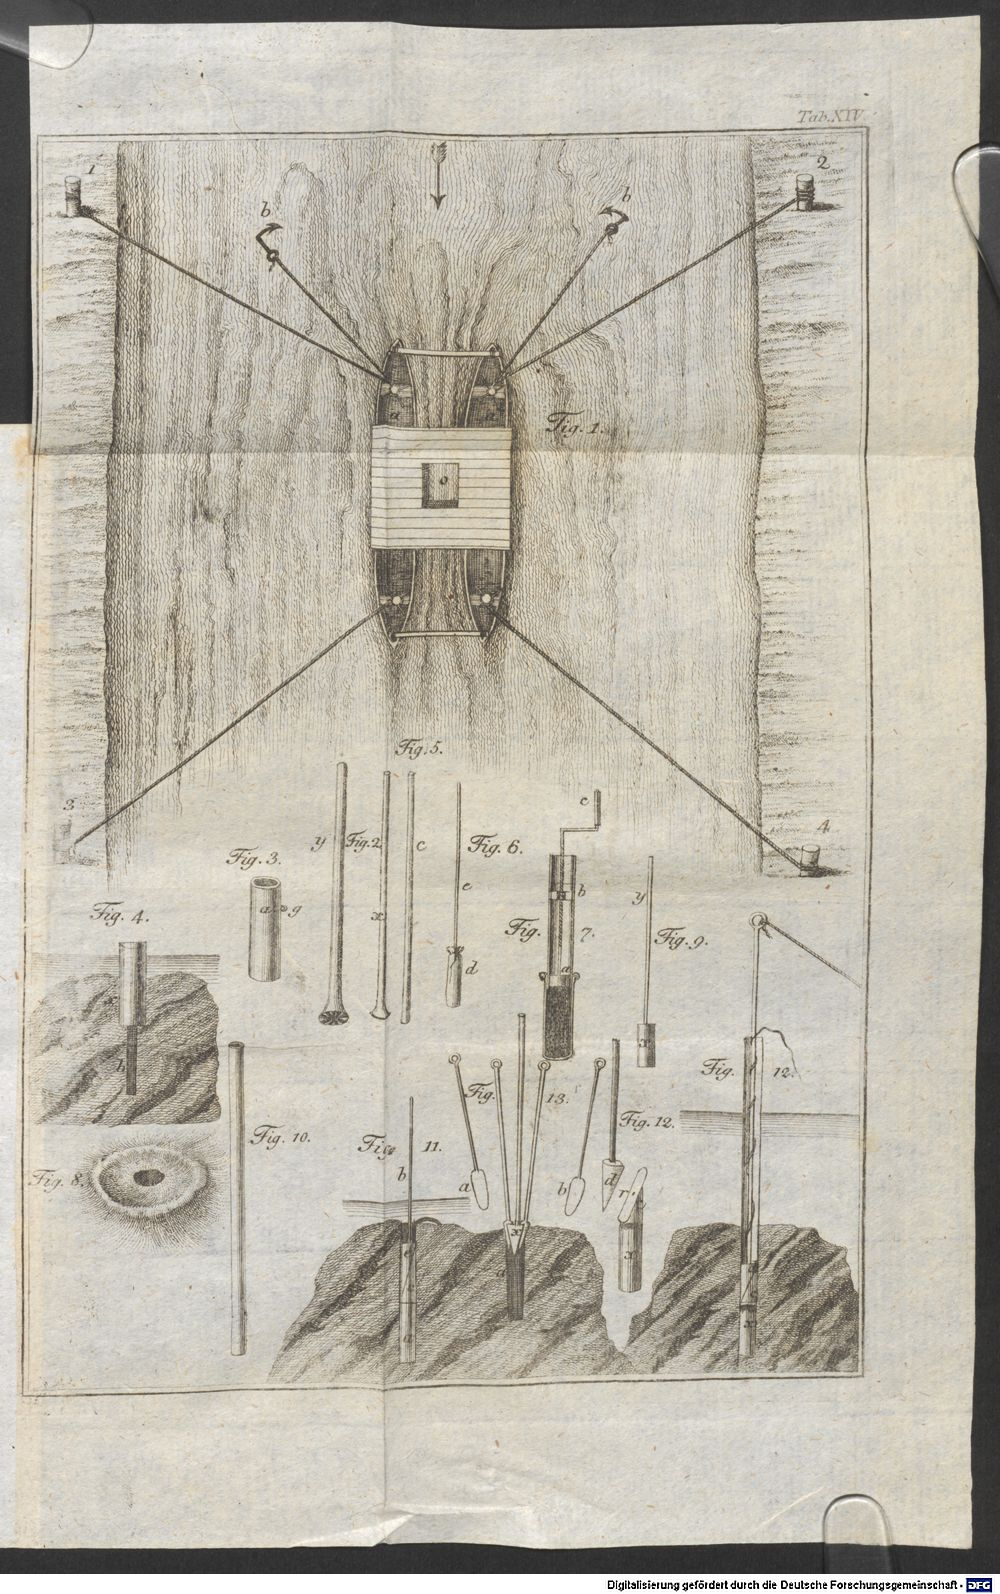 Tab. XIV
1
2
b
b
a
a
Fig. 1.
o
3
4
Fig. 5.
y
Fig. 2
c
x
Fig. 6.
e
d
c
Fig. 3.
a
g
Fig. 4.
a
b
b
Fig. 7.
a
y
Fig. 9.
x
Fig. 12.
Fig. 13.
Fig. 12.
Fig. 10.
Fig. 11.
b
a
b
d
r
x
Fig. 8.
x
a
a
x
Digitalisierung gefördert durch die Deutsche Forschungsgemeinschaft - DFG